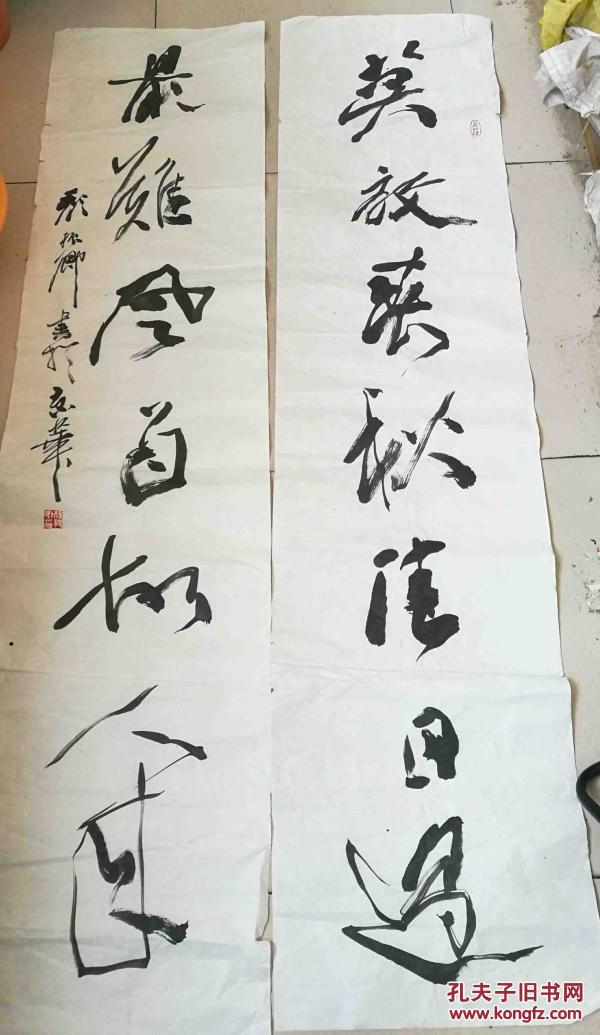 莫放春秋佳日過
最難風雨故人來
書於京華
孔夫子旧书网
www.kongfz.com